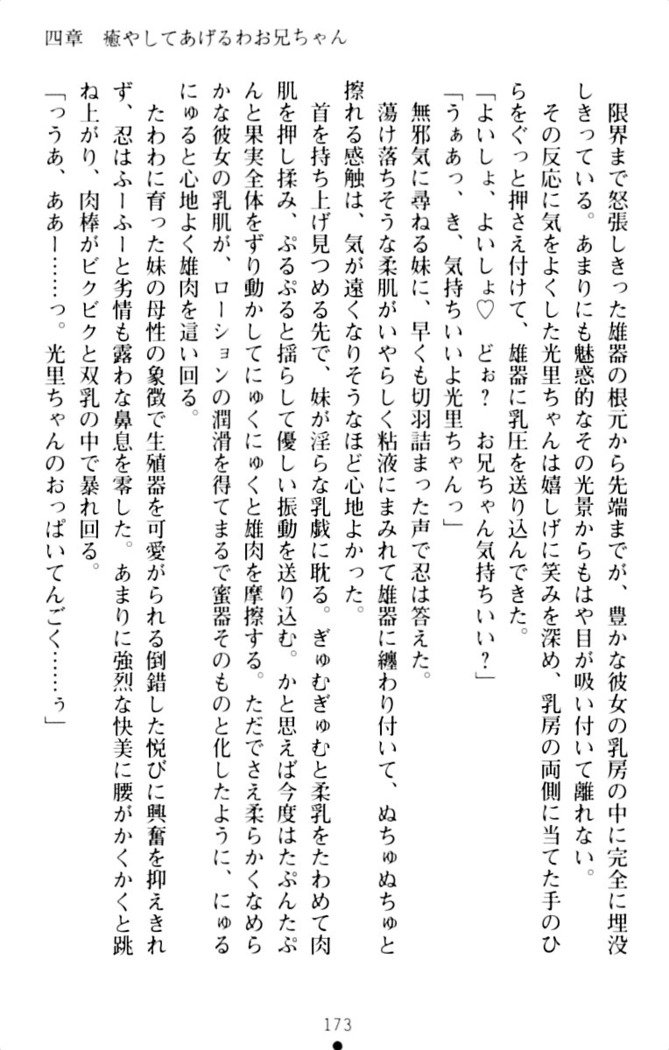 四章 癒やしてあげるわお兄ちゃん
限界まで怒張しきった雄器の根元から先端までが、豊かな彼女の乳房の中に完全に埋没
しきっている。あまりにも魅惑的なその光景からもはや目が吸い付いて離れない。
その反応に気をよくした光里ちゃんは嬉しげに笑みを深め、乳房の両側に当てた手のひ
らをぐっと押さえ付けて、雄器に乳圧を送り込んできた。
「よいしょ、よいしょ♡ どぉ? お兄ちゃん気持ちいい?」
「うぁあっ、き、気持ちいいよ光里ちゃんっ」
無邪気に尋ねる妹に、早くも切羽詰まった声で忍は答えた。
蕩け落ちそうな柔肌がいやらしく粘液にまみれて雄器に纏わり付いて、ぬちゅぬちゅと
擦れる感触は、気が遠くなりそうなほど心地よかった。
首を持ち上げ見つめる先で、妹が淫らな乳戯に耽る。ぎゅむぎゅむと柔乳をたわめて肉
肌を押し揉み、ぷるぷると揺らして優しい振動を送り込む。かと思えば今度はたぷんたぷ
んと果実全体をずり動かしてにゅくにゅくと雄肉を摩擦する。ただでさえ柔らかくなめら
かな彼女の乳肌が、ローションの潤滑を得てまるで蜜器そのものと化したように、にゅる
にゅると心地よく雄肉を這い回る。
たわわに育った妹の母性の象徴で生殖器を可愛がられる倒錯した悦びに興奮を抑えきれ
ず、忍はふーふーと劣情も露わな鼻息を零した。あまりに強烈な快美に腰がかくかくと跳
ね上がり、肉棒がビクビクと双乳の中で暴れ回る。
「っうあ、ああー……っ。光里ちゃんのおっぱいてんごく……ぅ」
173